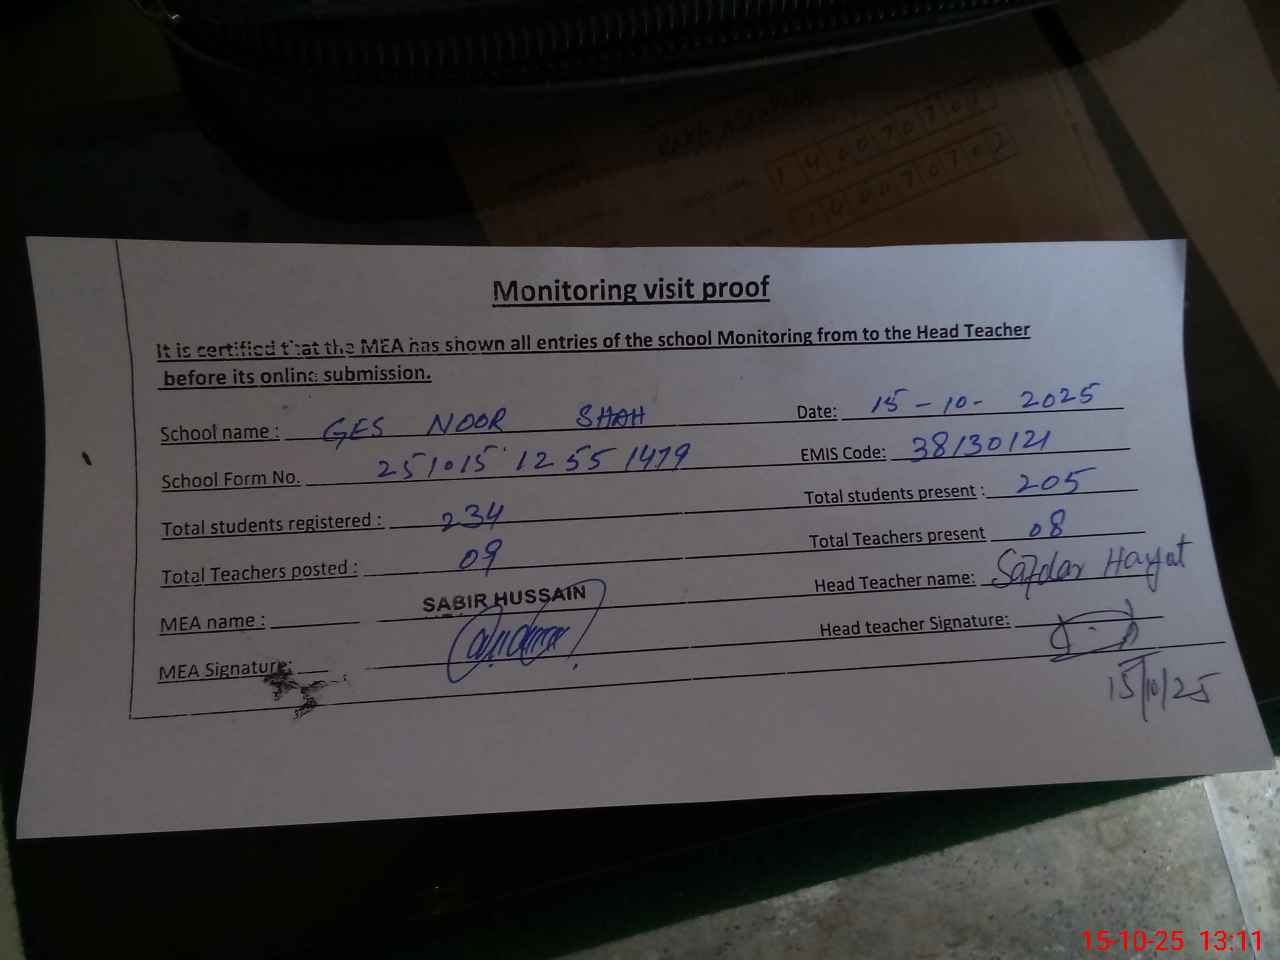 Monitoring visit proof
It is certified that the MEA has shown all entries of the school Monitoring from to the Head Teacher
before its online submission.
School name : GES NOOR SHAH Date: 15-10-2025
School Form No. 251015 12551479 EMIS Code: 38130121
Total students registered : 234 Total students present : 205
Total Teachers posted : 09 Total Teachers present 08
MEA name : SABIR HUSSAIN Head Teacher name: Safdar Hayat
MEA Signature: Head teacher Signature:
15/10/25
15-10-25 13:11